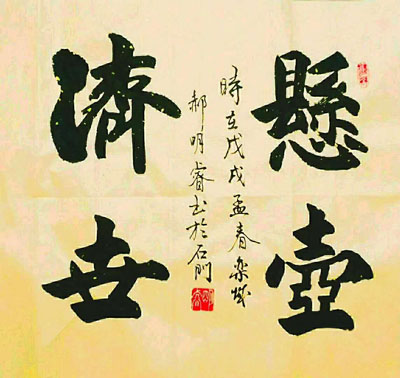 懸壺
濟世
時在戊戌孟春栾城
郝明睿书於石門